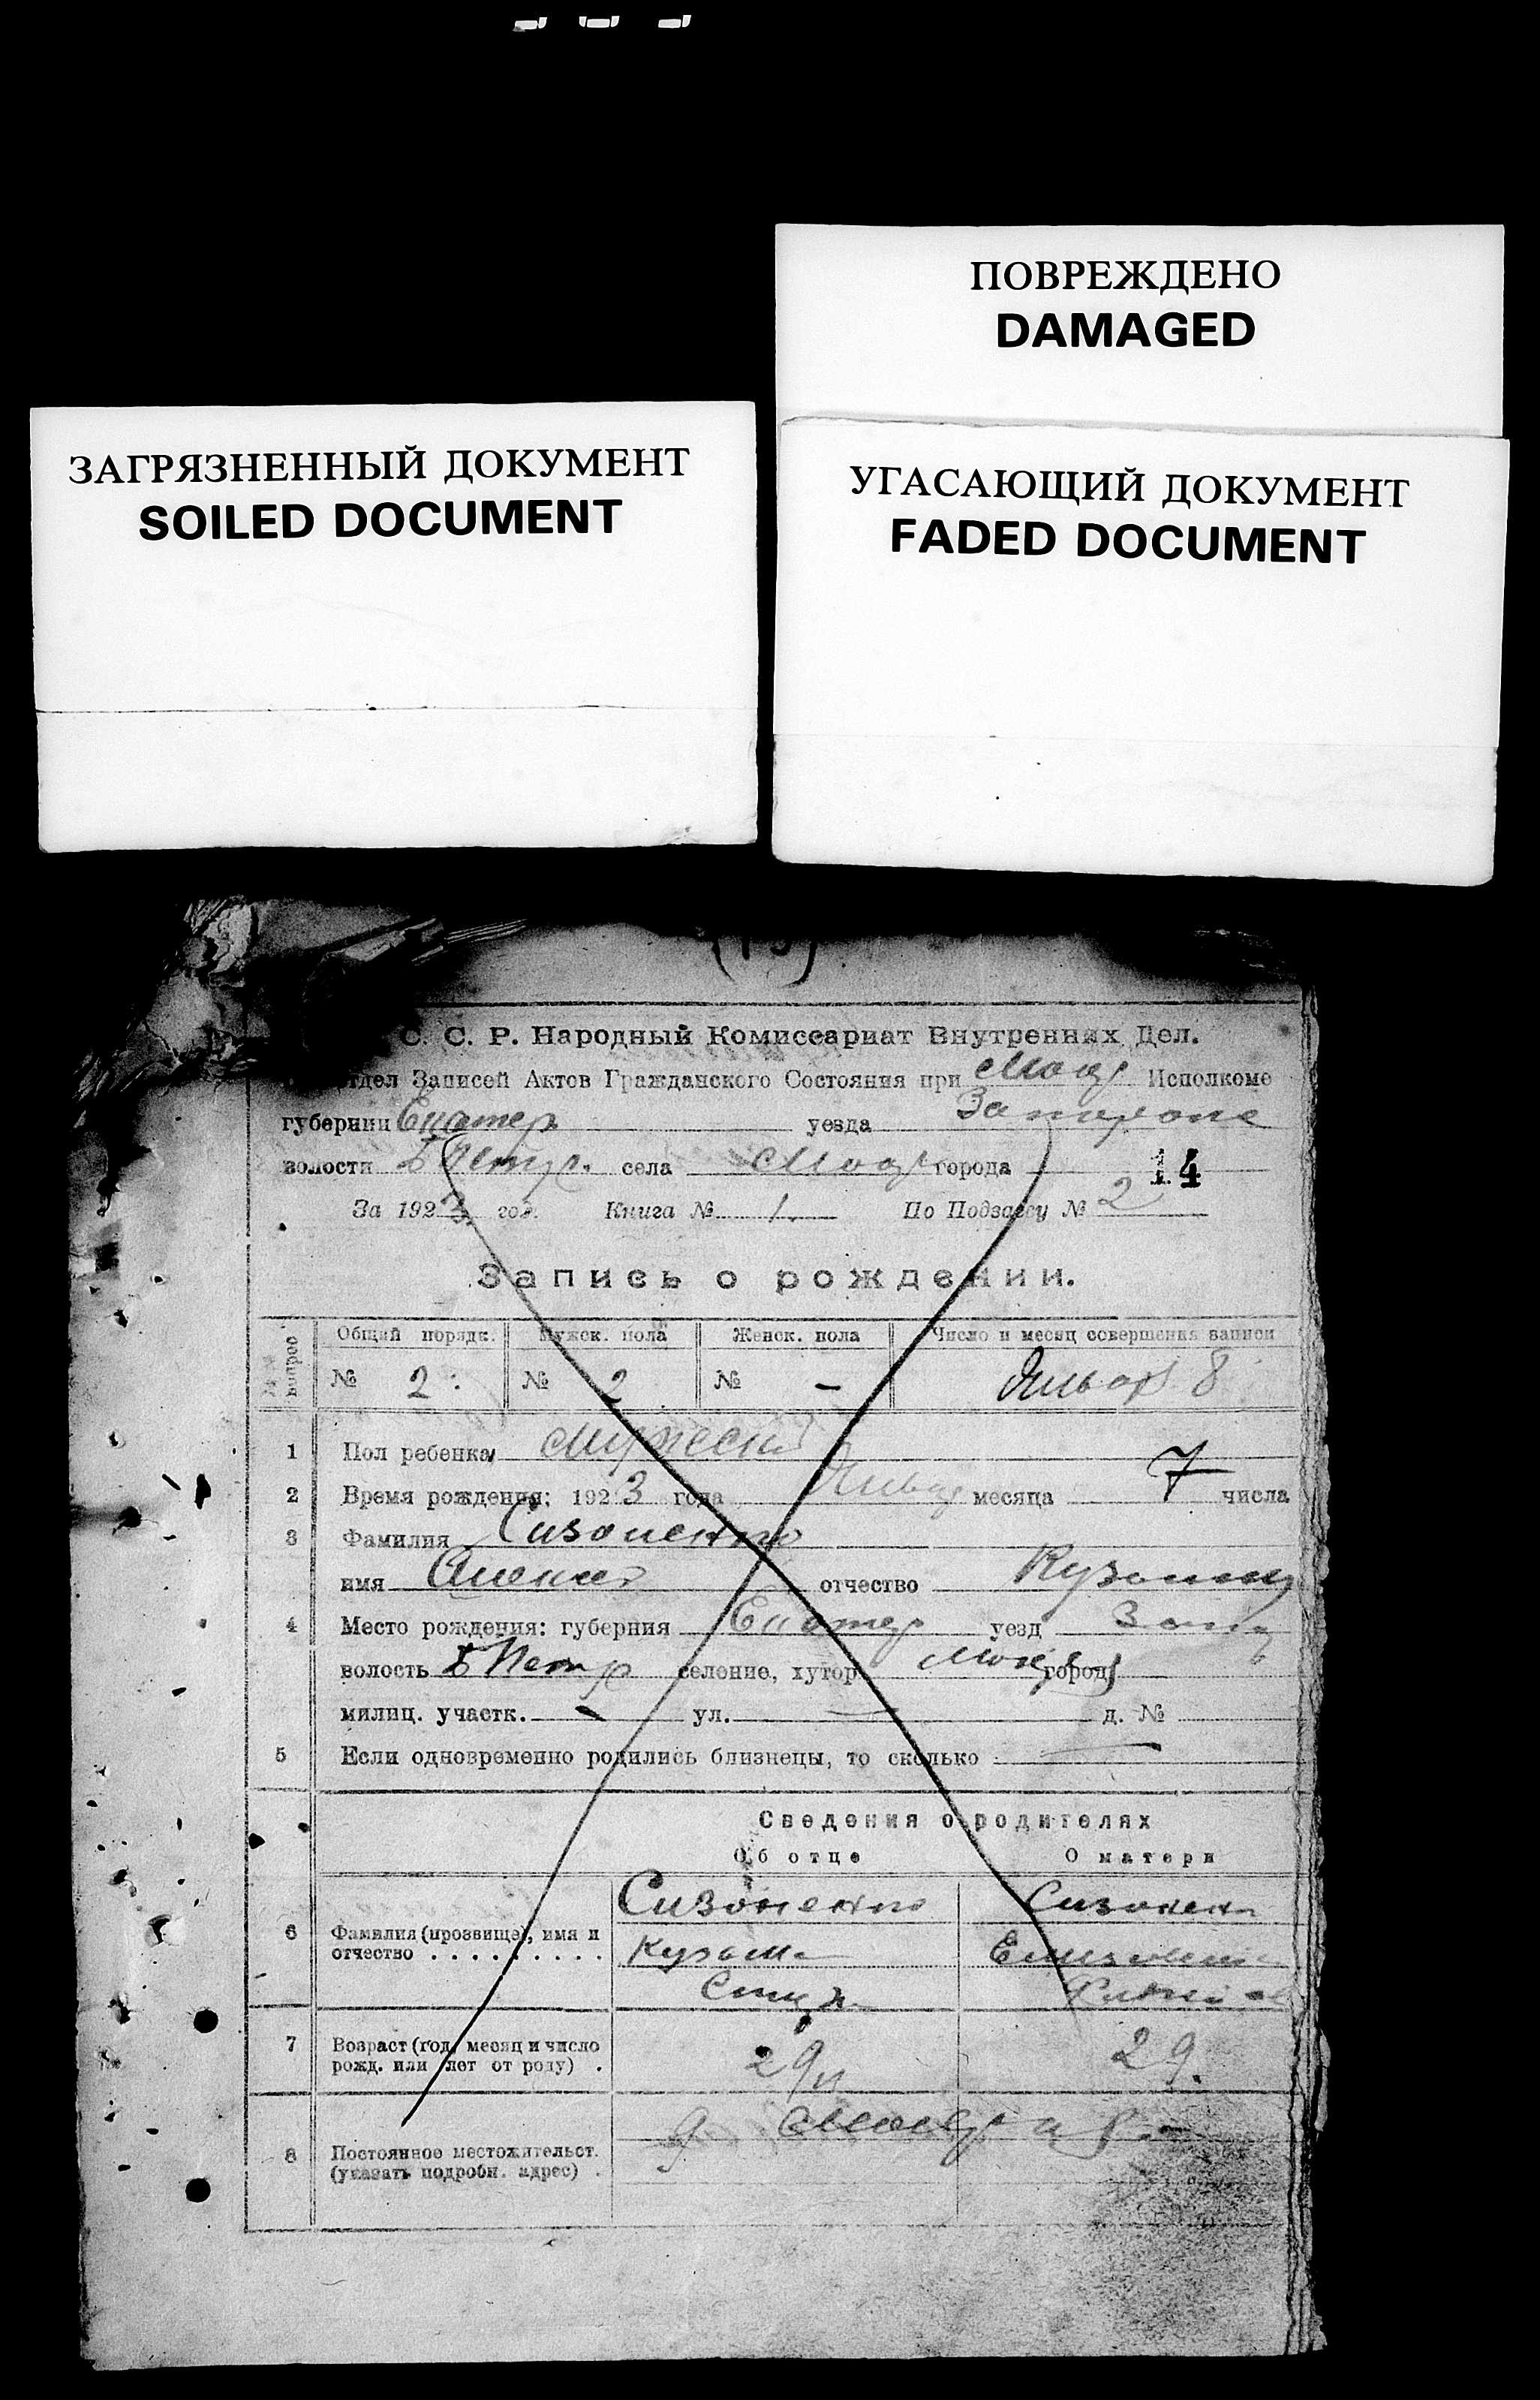 ПОВРЕЖДЕНО
DAMAGED
ЗАГРЯЗНЕННЫЙ ДОКУМЕНТ
SOILED DOCUMENT
УГАСАЮЩИЙ ДОКУМЕНТ
FADED DOCUMENT
С. С. Р. Народный Комиссариат Внутренних Дел.
отдел Записей Актов Гражданского Состояния при Исполкоме
губернии Екатер уезда
волости села города 14
За 1923 год. Книга № 1. По Подзаесу № 2
Запись о рождении.
Общий порядк. Мужск. пола Женск. пола Число и месяц совершения записи
№ 2 № 2 № — Январь 8
1 Пол ребенка Мужеский
2 Время рождения: 1923 года Январ месяца 7 числа
3 Фамилия Сизоненко
имя Алексей отчество
4 Место рождения: губерния Екатер уезд Запор
волость Б Петр селение, хутор город
милиц. участк. — ул. — д. №
5 Если одновременно родились близнецы, то сколько —
Сведения о родителях
Об отце О матери
6 Фамилия (прозвище), имя и отчество Сизоненко Сизонен
Кузьма
7 Возраст (год, месяц и число рожд. или лет от роду) . 29 29.
8 Постоянное местожительст. (указать подробн. адрес) .